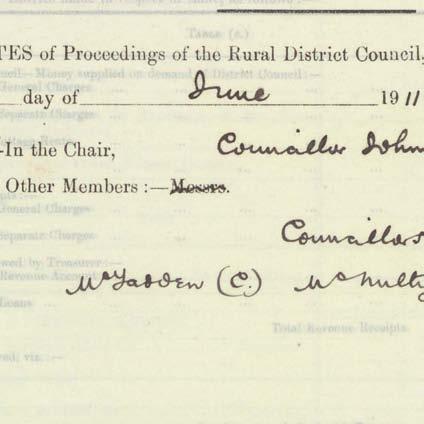 TES of Proceedings of the Rural District Council,
day of June 1911
-In the Chair, Councillor John
Other Members :—Messrs.
Councillors
McFadden (C.) McNulty